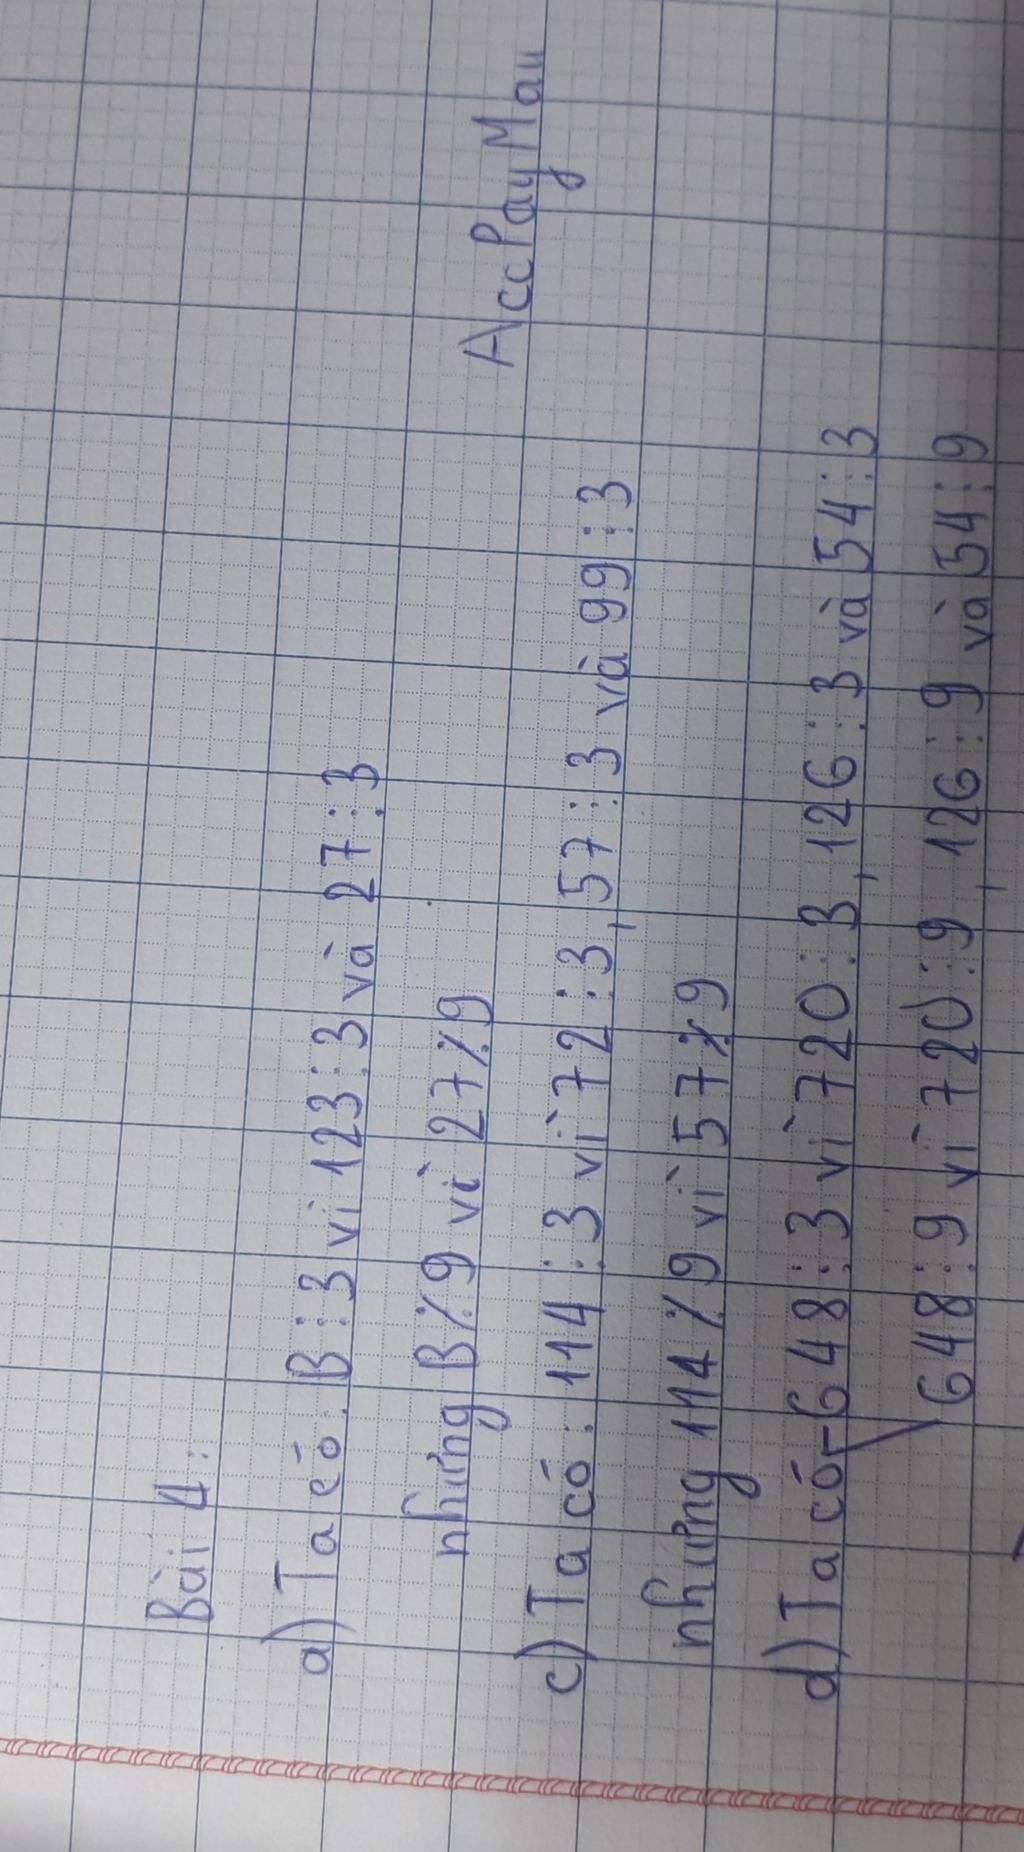 Bài 4:
a) Ta có: B⋮3 vì 123⋮3 và 27⋮3
nhưng B⋮̸9 vì 27⋮̸9
AccPayMau
c) Ta có: 114⋮3 vì 72⋮3, 57⋮3 và 99⋮3
nhưng 114⋮̸9 vì 57⋮̸9
d) Ta có 648⋮3 vì 720⋮3, 126⋮3 và 54⋮3
648⋮9 vì 720⋮9, 126⋮9 và 54⋮9